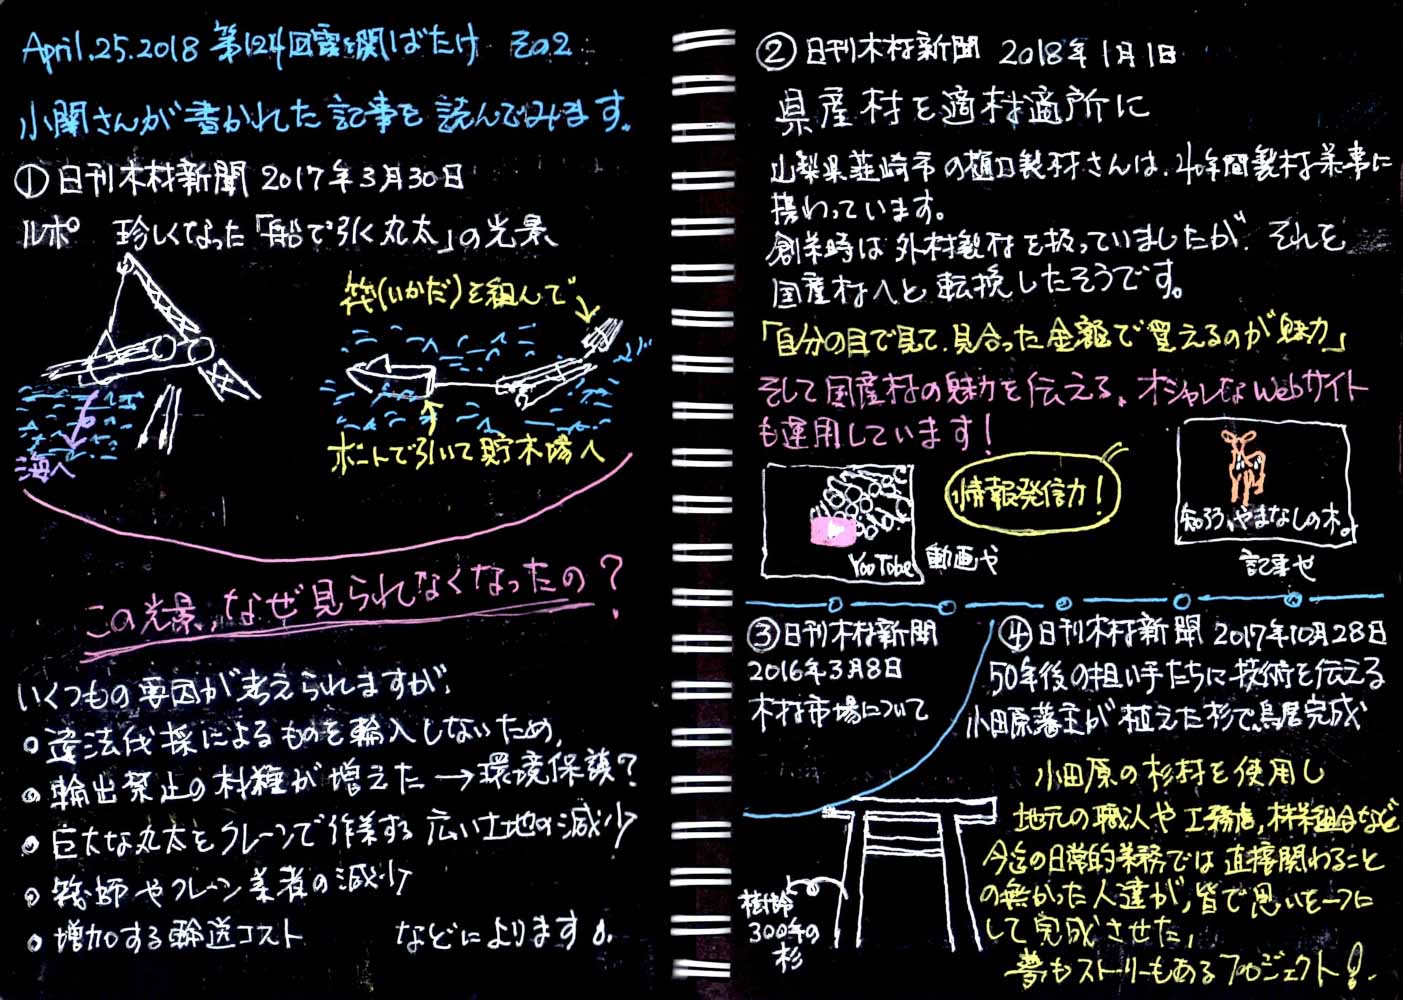 April.25.2018 第124回霞ヶ関ばたけ その2
小関さんが書かれた記事を読んでみます。
① 日刊木材新聞 2017年3月30日
ルポ 珍しくなった「船で引く丸太」の光景
筏(いかだ)を組んで
海へ
ボートで引いて貯木場へ
この光景、なぜ見られなくなったの?
いくつもの要因が考えられますが、
違法伐採によるものを輸入しないため、
輸出禁止の材種が増えた → 環境保護?
巨大な丸太をクレーンで作業する広い土地の減少
筏師やクレーン業者の減少
増加する輸送コスト などによります。
② 日刊木材新聞 2018年1月1日
県産材を適材適所に
山梨県韮崎市の樋口製材さんは、40年間製材業事に
携わっています。
創業時は外材製材を扱っていましたが、それを
国産材へと転換したそうです。
「自分の目で見て、見合った金額で買えるのが魅力」
そして国産材の魅力を伝える、オシャレなwebサイト
も運用しています!
情報発信力!
YouTube 動画や
知ろう、やまなしの木。
記事も
③ 日刊木材新聞
2016年3月8日
木材市場について
④ 日刊木材新聞 2017年10月28日
50年後の担い手たちに技術を伝える
小田原藩主が植えた杉で、鳥居完成
小田原の杉材を使用し
地元の職人や工務店、林業組合など
今迄の日常的業務では直接関わること
の無かった人達が、皆で思いを一つに
して完成させた、
夢もストーリーもあるプロジェクト!
樹齢
300年の
杉